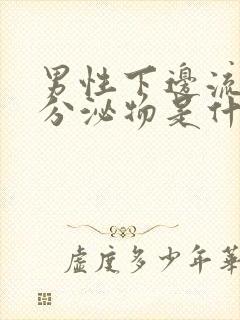 男性下邊流
分泌物是什
虛度多少年華